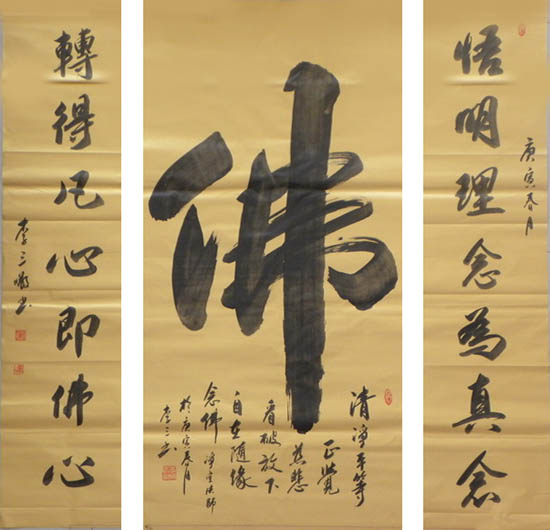 庚寅春月
悟明理念為真念
佛
清淨平等
正覺
慈悲
看破放下
自在隨緣
念佛 淨空法師
於庚寅春月
李三书
轉得凡心即佛心
李三书